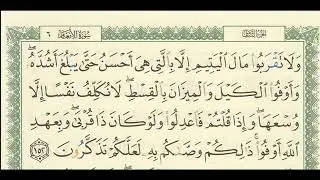 الجزء الثامن سورة الأنعام ٦
وَلَا تَقْرَبُوا۟ مَالَ ٱلْيَتِيمِ إِلَّا بِٱلَّتِى هِىَ أَحْسَنُ حَتَّىٰ يَبْلُغَ أَشُدَّهُۥ ۖ
وَأَوْفُوا۟ ٱلْكَيْلَ وَٱلْمِيزَانَ بِٱلْقِسْطِ ۖ لَا نُكَلِّفُ نَفْسًا إِلَّا
وُسْعَهَا ۖ وَإِذَا قُلْتُمْ فَٱعْدِلُوا۟ وَلَوْ كَانَ ذَا قُرْبَىٰ ۖ وَبِعَهْدِ
ٱللَّهِ أَوْفُوا۟ ۚ ذَٰلِكُمْ وَصَّىٰكُم بِهِۦ لَعَلَّكُمْ تَذَكَّرُونَ ١٥٢